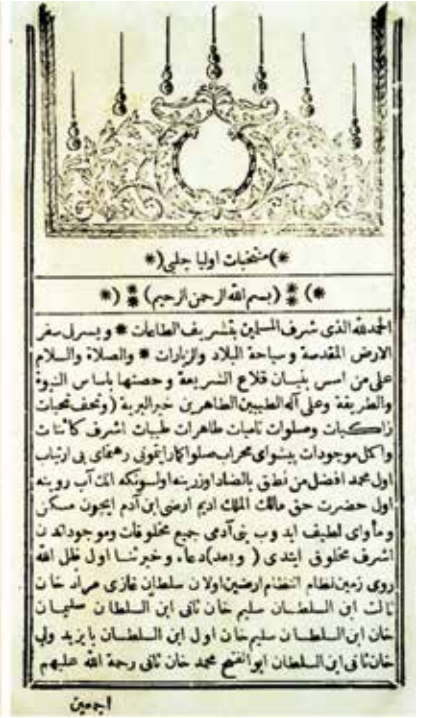 *)منتخبات اوليا چلبى(*
*) (بسم الله الرحمن الرحيم) (*
الحمد لله الذى شرف المسلمين بتشريف الطاعات * ويسرلى سفر
الارض المقدسة وسياحة البلاد والزيارات * والصلاة والسلام
على من اسس بنيان قلاع الشريعة وحصنها باساس النبوة
والطريقة وعلى آله الطيبين الطاهرين خير البرية (وتحف تحيات
زاكيات وصلوات ناميات طاهرات طيبات اشرف كائنات
واكمل موجودات پيشواى محراب صلوا كما رايتمونى رهنماى بى ارتياب
اول محمد افضل من نطق بالضاد اوزرينه اولسونكه انك آب روينه
اول حضرت حق مالك الملك اديم ارضى ابن آدم ايچون مسكن
ومأواى لطيف ايدوب بنى آدمى جميع مخلوقات وموجوداتدن
اشرف مخلوق ايتدى (وبعد) دعاء وخبر ثنا اول ظل الله
روى زمين نظام انتظام ارضين اولان سلطان غازى مراد خان
ثالث ابن السلطان سليم خان ثانى ابن السلطان سليمان
خان ابن السلطان سليم خان اول ابن السلطان بايزيد ولى
خان ثانى ابن السلطان ابو الفتح محمد خان ثانى رحمة الله عليهم
اجمعين